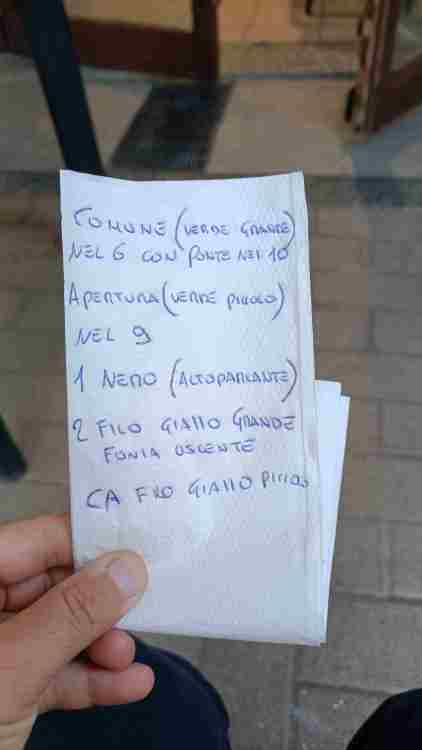 COMUNE (VERDE GRANDE)
NEL 6 CON PONTE NEL 10
APERTURA (VERDE PICCOLO)
NEL 9
1 NERO (ALTOPARLANTE)
2 FILO GIALLO GRANDE
FONIA USCENTE
CA FILO GIALLO PICCOLO